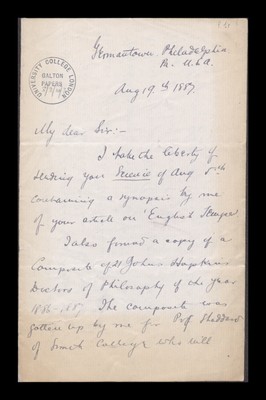 UNIVERSITY COLLEGE LONDON
GALTON
PAPERS
Germantown, Philadelphia
Pa. U.S.A.
Aug 19th 1887.
My dear Sir:—
I take the liberty of
sending you Science of Aug 5th
containing a synopsis by me
of your article on 'English
I also found a copy of a
Composite of 21 Johns Hopkins
Doctors of Philosophy of the year
1886-1887. The composite was
gotten up by me for Prof Stoddard
of Smith College who will